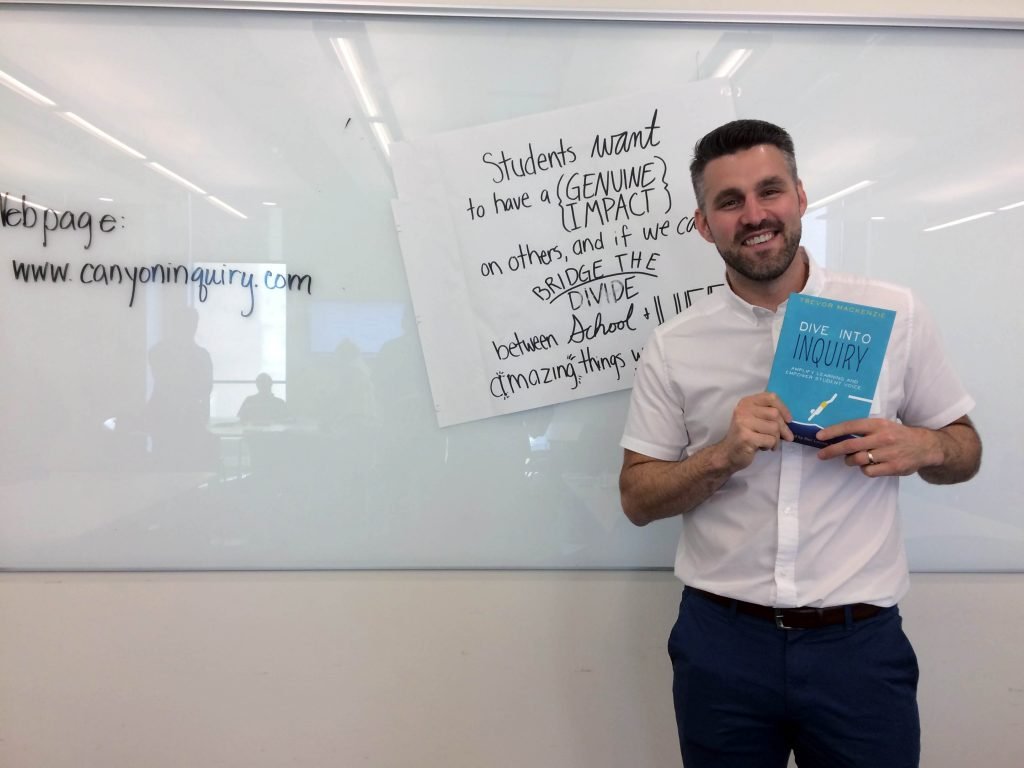 Webpage:
www.canyoninquiry.com
Students want
to have a {GENUINE}
{IMPACT}
on others, and if we
BRIDGE THE
DIVIDE
between School + LIFE
amazing things
TREVOR MACKENZIE
DIVE INTO
INQUIRY
AMPLIFY LEARNING AND
EMPOWER STUDENT VOICE